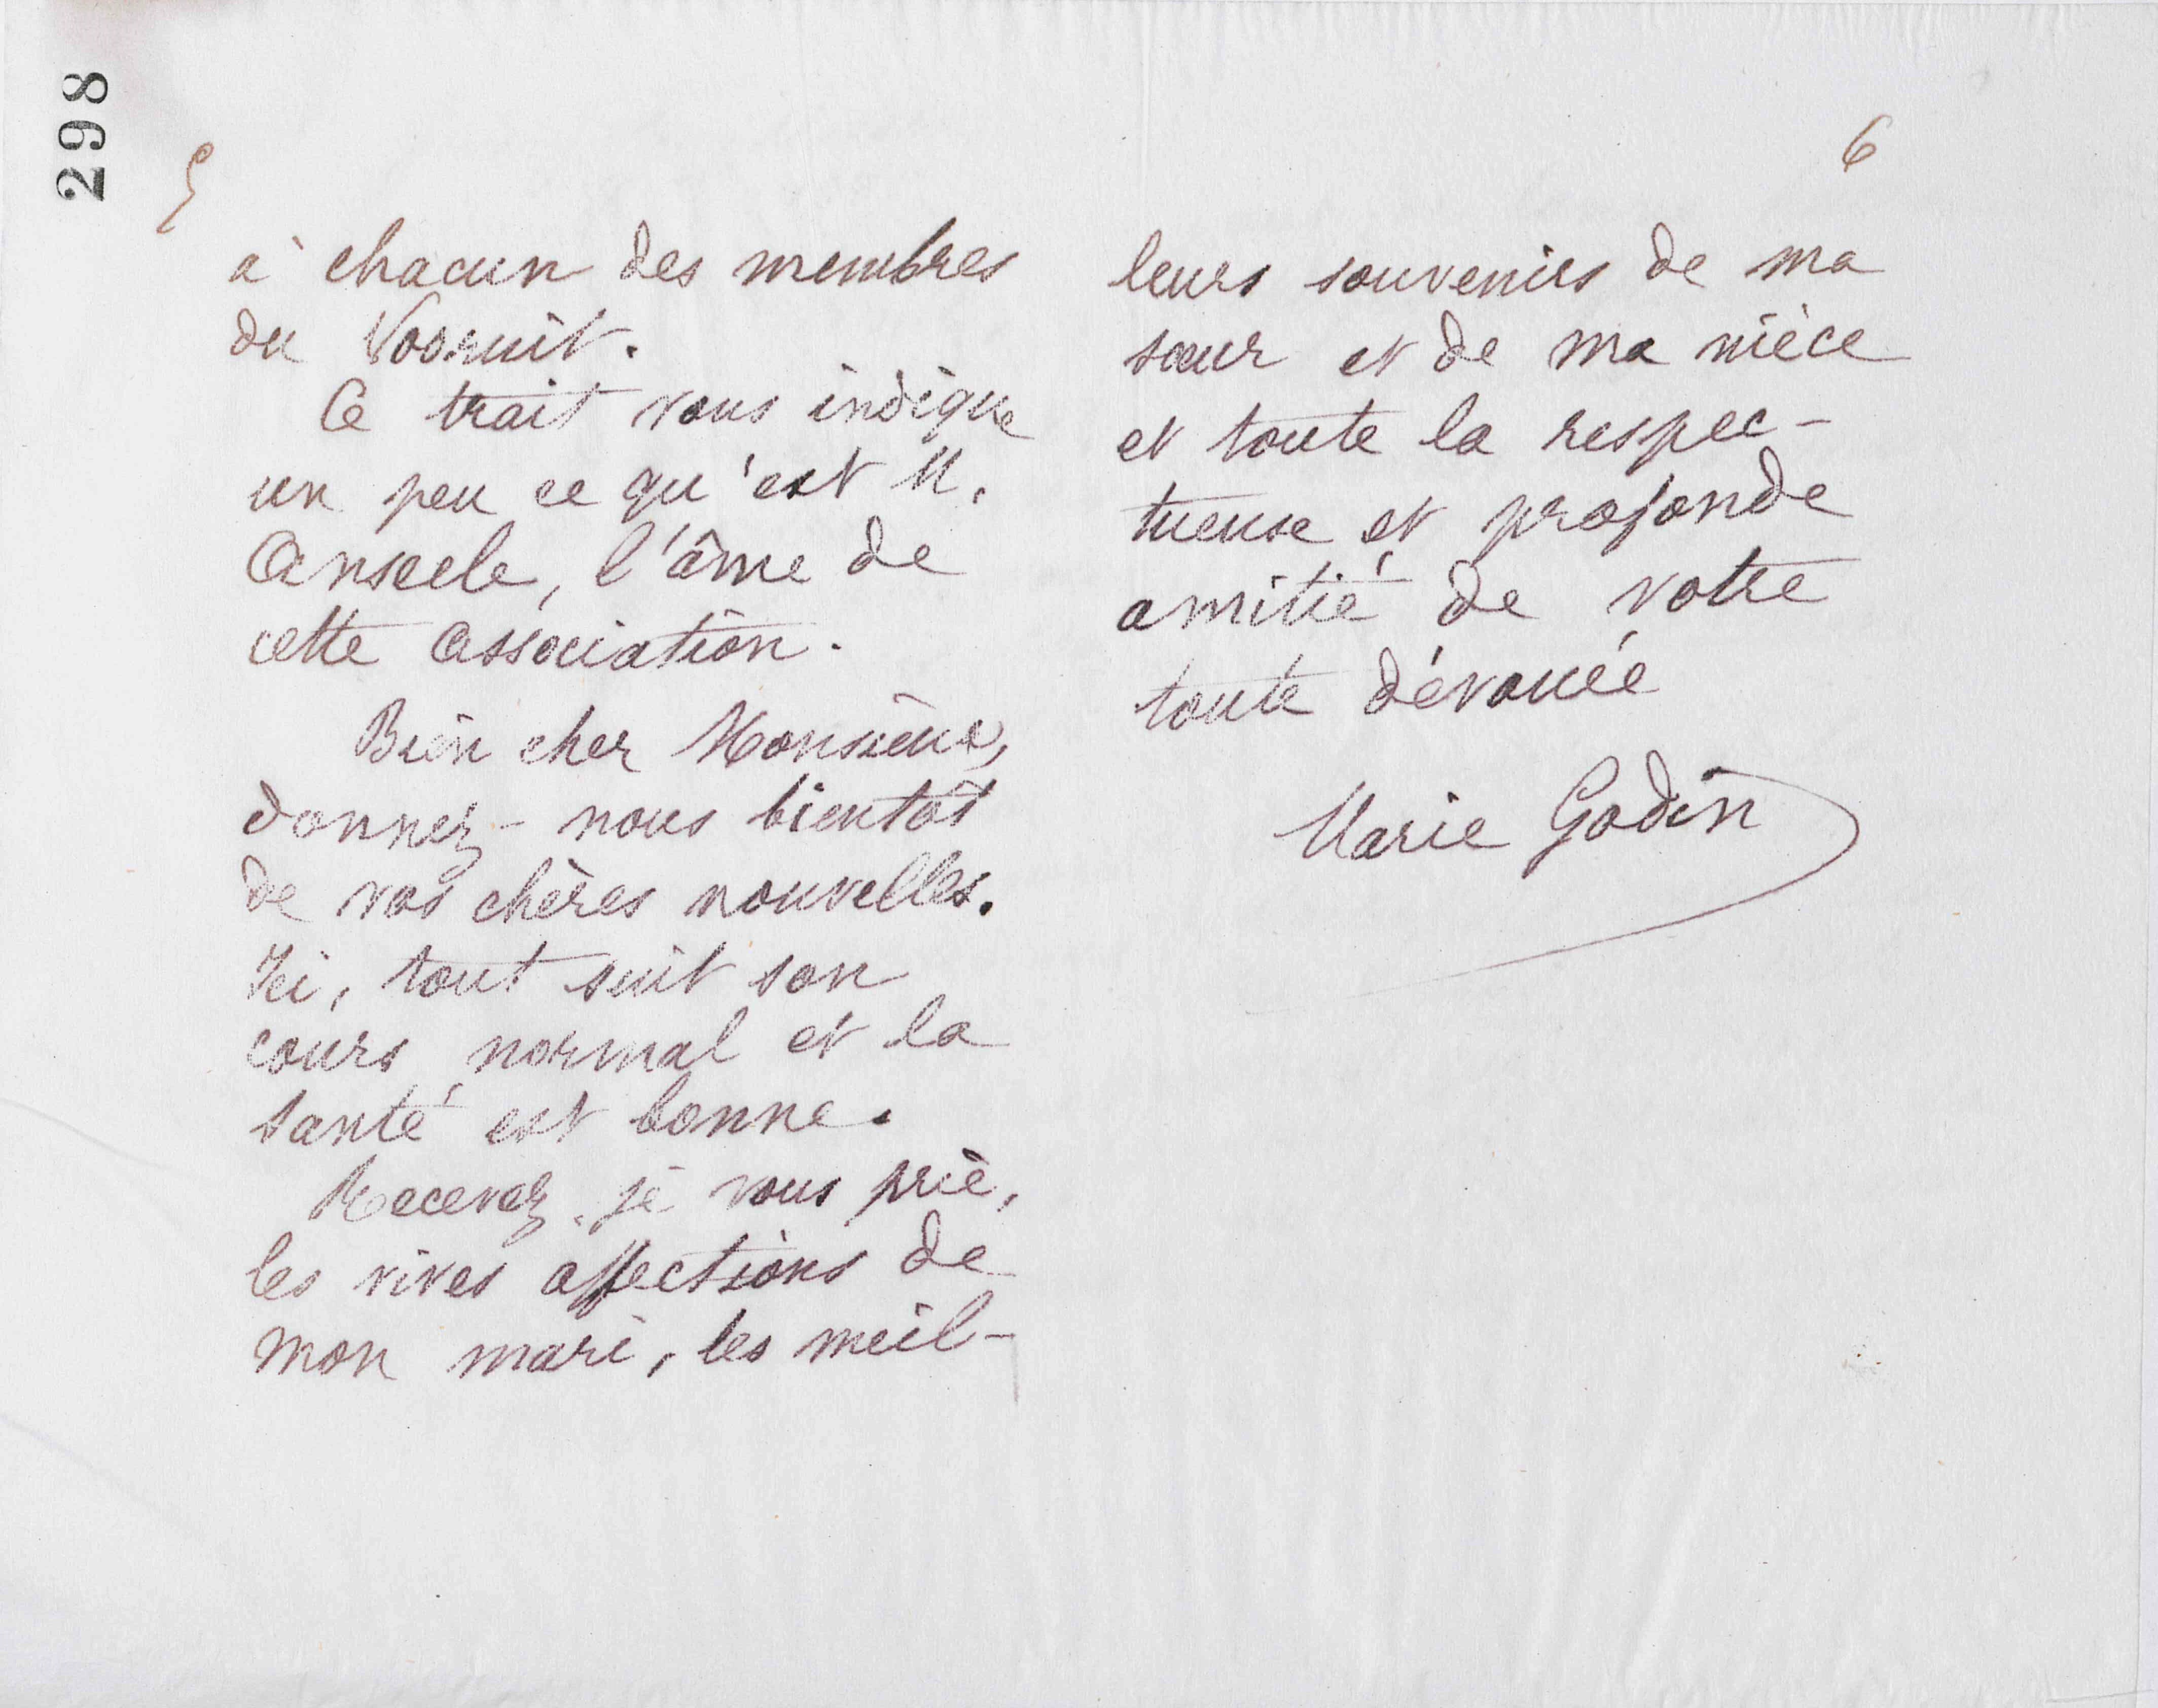 298
5
à chacun des membres
du Vooruit.
Ce trait vous indique
un peu ce qu'est M.
Anseele, l'âme de
cette Association.
Bien cher Monsieur,
donnez-nous bientôt
de vos chères nouvelles.
Ici, tout suit son
cours normal et la
santé est bonne.
Recevez, je vous prie,
les vives affections de
mon mari, les meil-
6
leurs souvenirs de ma
sœur et de ma nièce
et toute la respec-
tueuse et profonde
amitié de votre
toute dévouée
Marie Godin